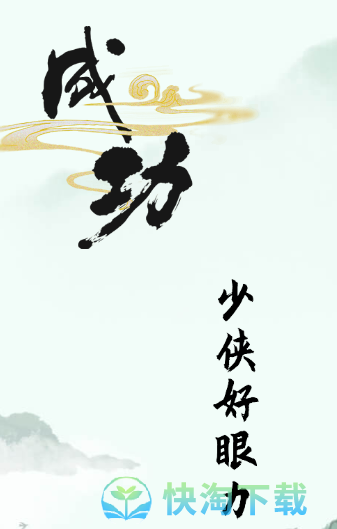 成功
少侠好眼力
快淘下载